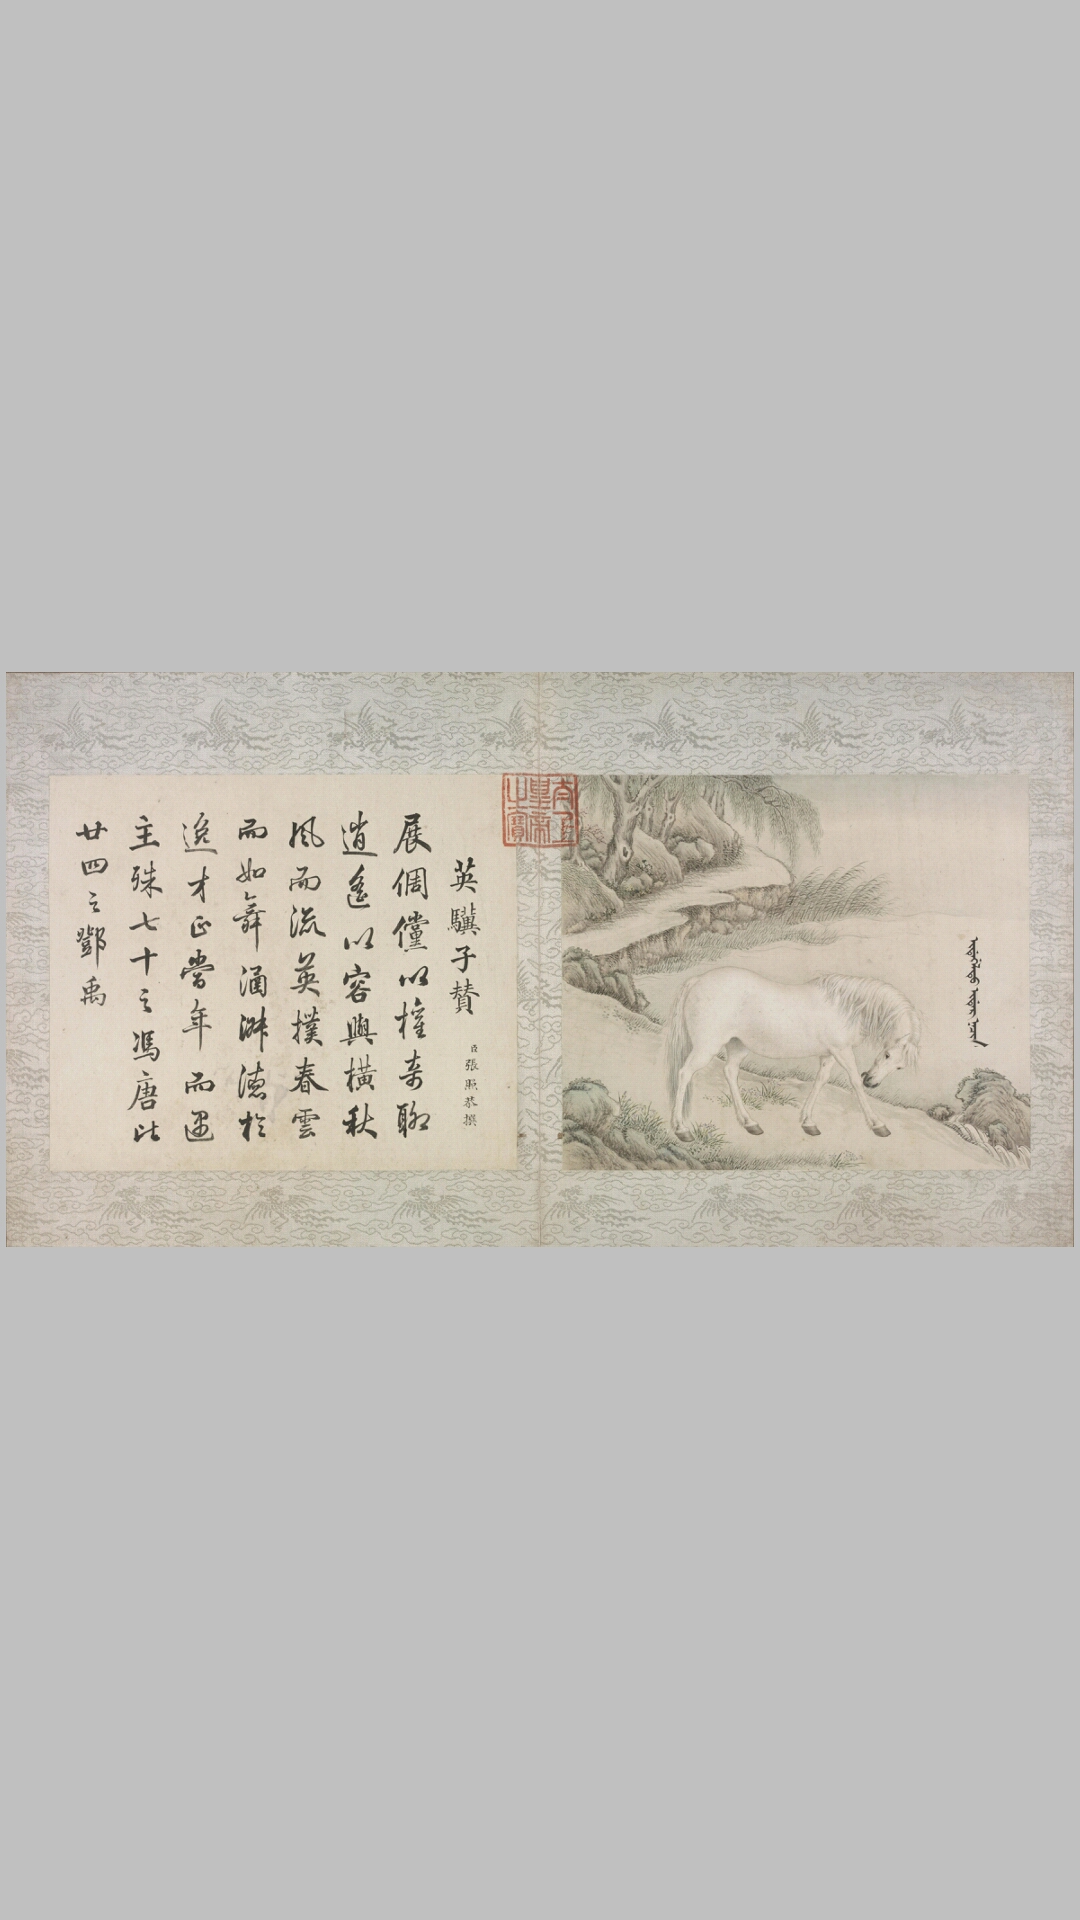 太上皇帝之寶
英驥子贊
臣張照恭撰
展倜儻以權奇聊
逍遙以容與橫秋
風而流英撲春雲
而如舞涵淵德於
逸才正當年而遇
主殊七十之馮唐比
廿四之鄧禹